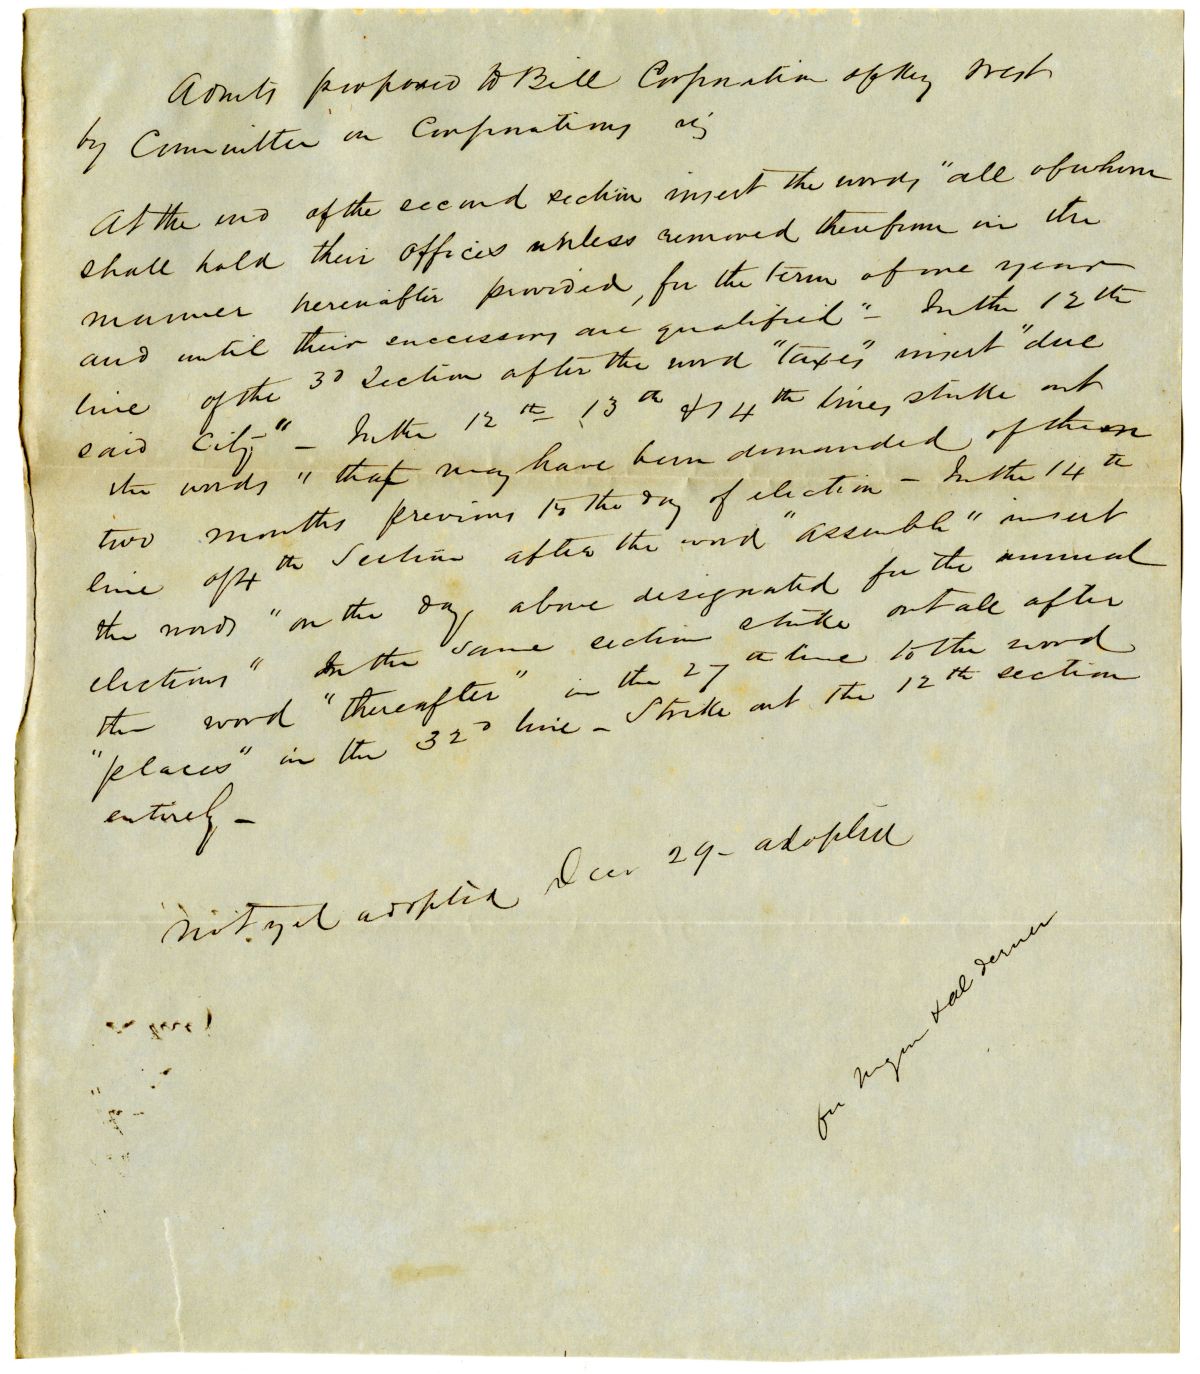 Admts proposed to Bill Corporation of Key West
by Committee on Corporations viz
At the end of the second section insert the words "all of whom
shall hold their offices unless removed therefrom in the
manner hereinafter provided, for the term of one year
and until their successors are qualified" – In the 12th
line of the 3d Section after the word "taxes" insert "due
said City" – In the 12th 13th & 14th lines strike out
the words "that may have been demanded of them
two months previous to the day of election – In the 14th
line of 4th Section after the word "assemble" insert
the words "on the day above designated for the annual
elections" In the same section strike out all after
the word "thereafter" in the 27th line to the word
"places" in the 32d line – Strike out the 12th section
entirely –
Not yet adopted Decr 29 – adopted
for Mayor & aldermen